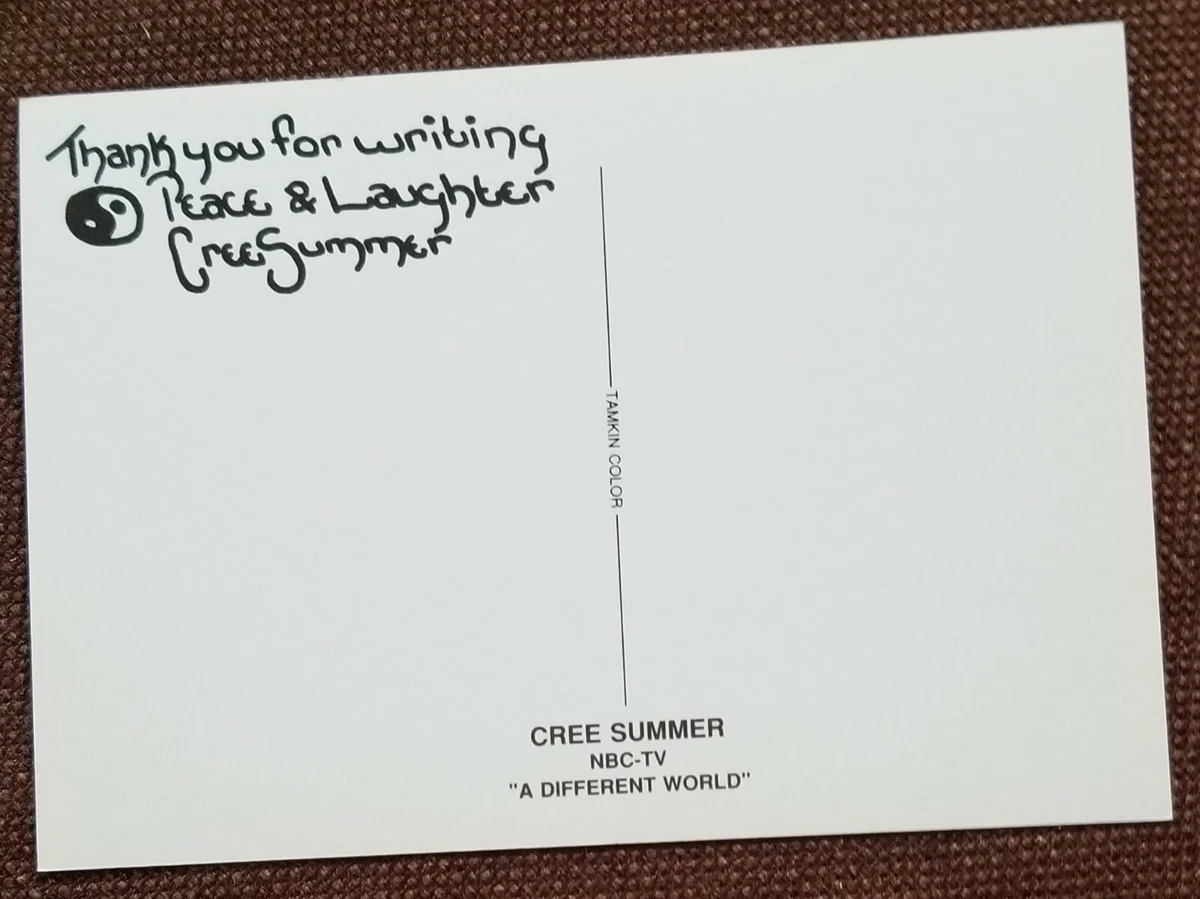 Thank you for writing
Peace & Laughter
Cree Summer
TAMKIN COLOR
CREE SUMMER
NBC-TV
"A DIFFERENT WORLD"